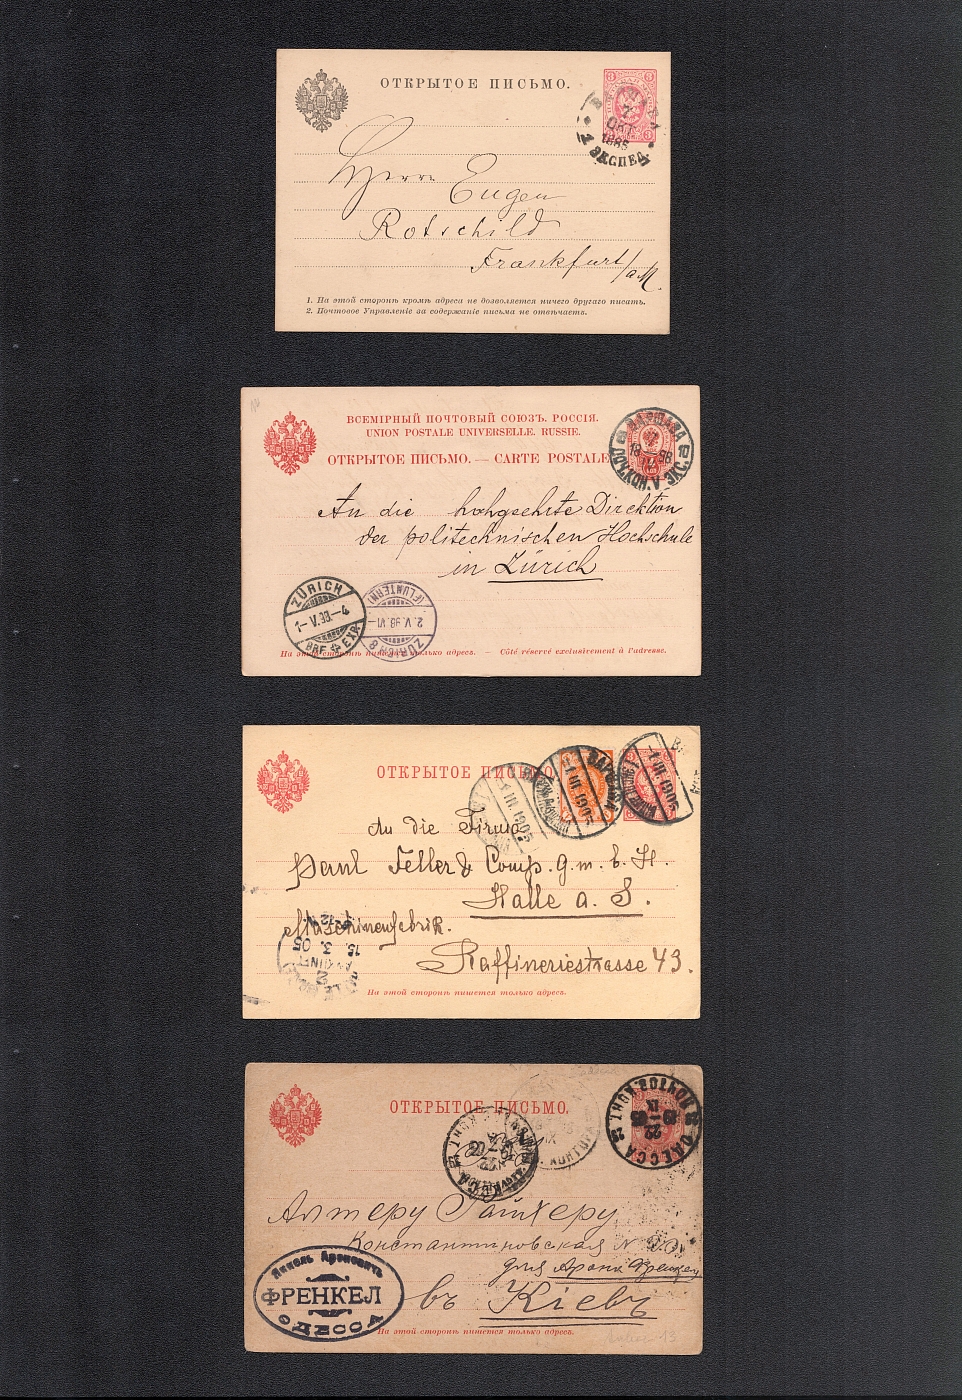 ОТКРЫТОЕ ПИСЬМО.
7
ОКТ
1885
ЭКСПЕД.
Herrn Eugen
Rotschild
Frankfurt/aM.
1. На этой сторонѣ кромѣ адреса не дозволяется ничего другаго писать.
2. Почтовое Управленіе за содержаніе письма не отвѣчаетъ.
ВСЕМІРНЫЙ ПОЧТОВЫЙ СОЮЗЪ. РОССІЯ.
UNION POSTALE UNIVERSELLE. RUSSIE.
ОТКРЫТОЕ ПИСЬМО. — CARTE POSTALE
ВАРШАВА
18 98
An die hohgeehrte Direktion
der politechnischen Hochschule
in Zürich
ZÜRICH
1-V.98.-4
BRF. EXP.
(FLUNTERN)
2.V.98.VI-
ZÜRICH 8
На этой сторонѣ пишется только адресъ. — Côté réservé exclusivement à l'adresse.
ОТКРЫТОЕ ПИСЬМО
1 III 1905
ВАРШАВА
1 III 1905
1 III 1905
An die Firma
Paul Feller & Comp. G. m. b. H.
Halle a. S.
Maschinenfabrik.
Raffineriestrasse 43.
15. 3. 05
На этой сторонѣ пишется только адресъ.
ОТКРЫТОЕ ПИСЬМО.
ОДЕССА
22
IX
ПОЧТОВ. КОНТ.
КОНТОРА
Алтеру Гайхеру
Константиновская N
для Арона Френкел
въ Кіевъ
Янкель Ароновичъ
ФРЕНКЕЛ
ОДЕССА
На этой сторонѣ пишется только адресъ.